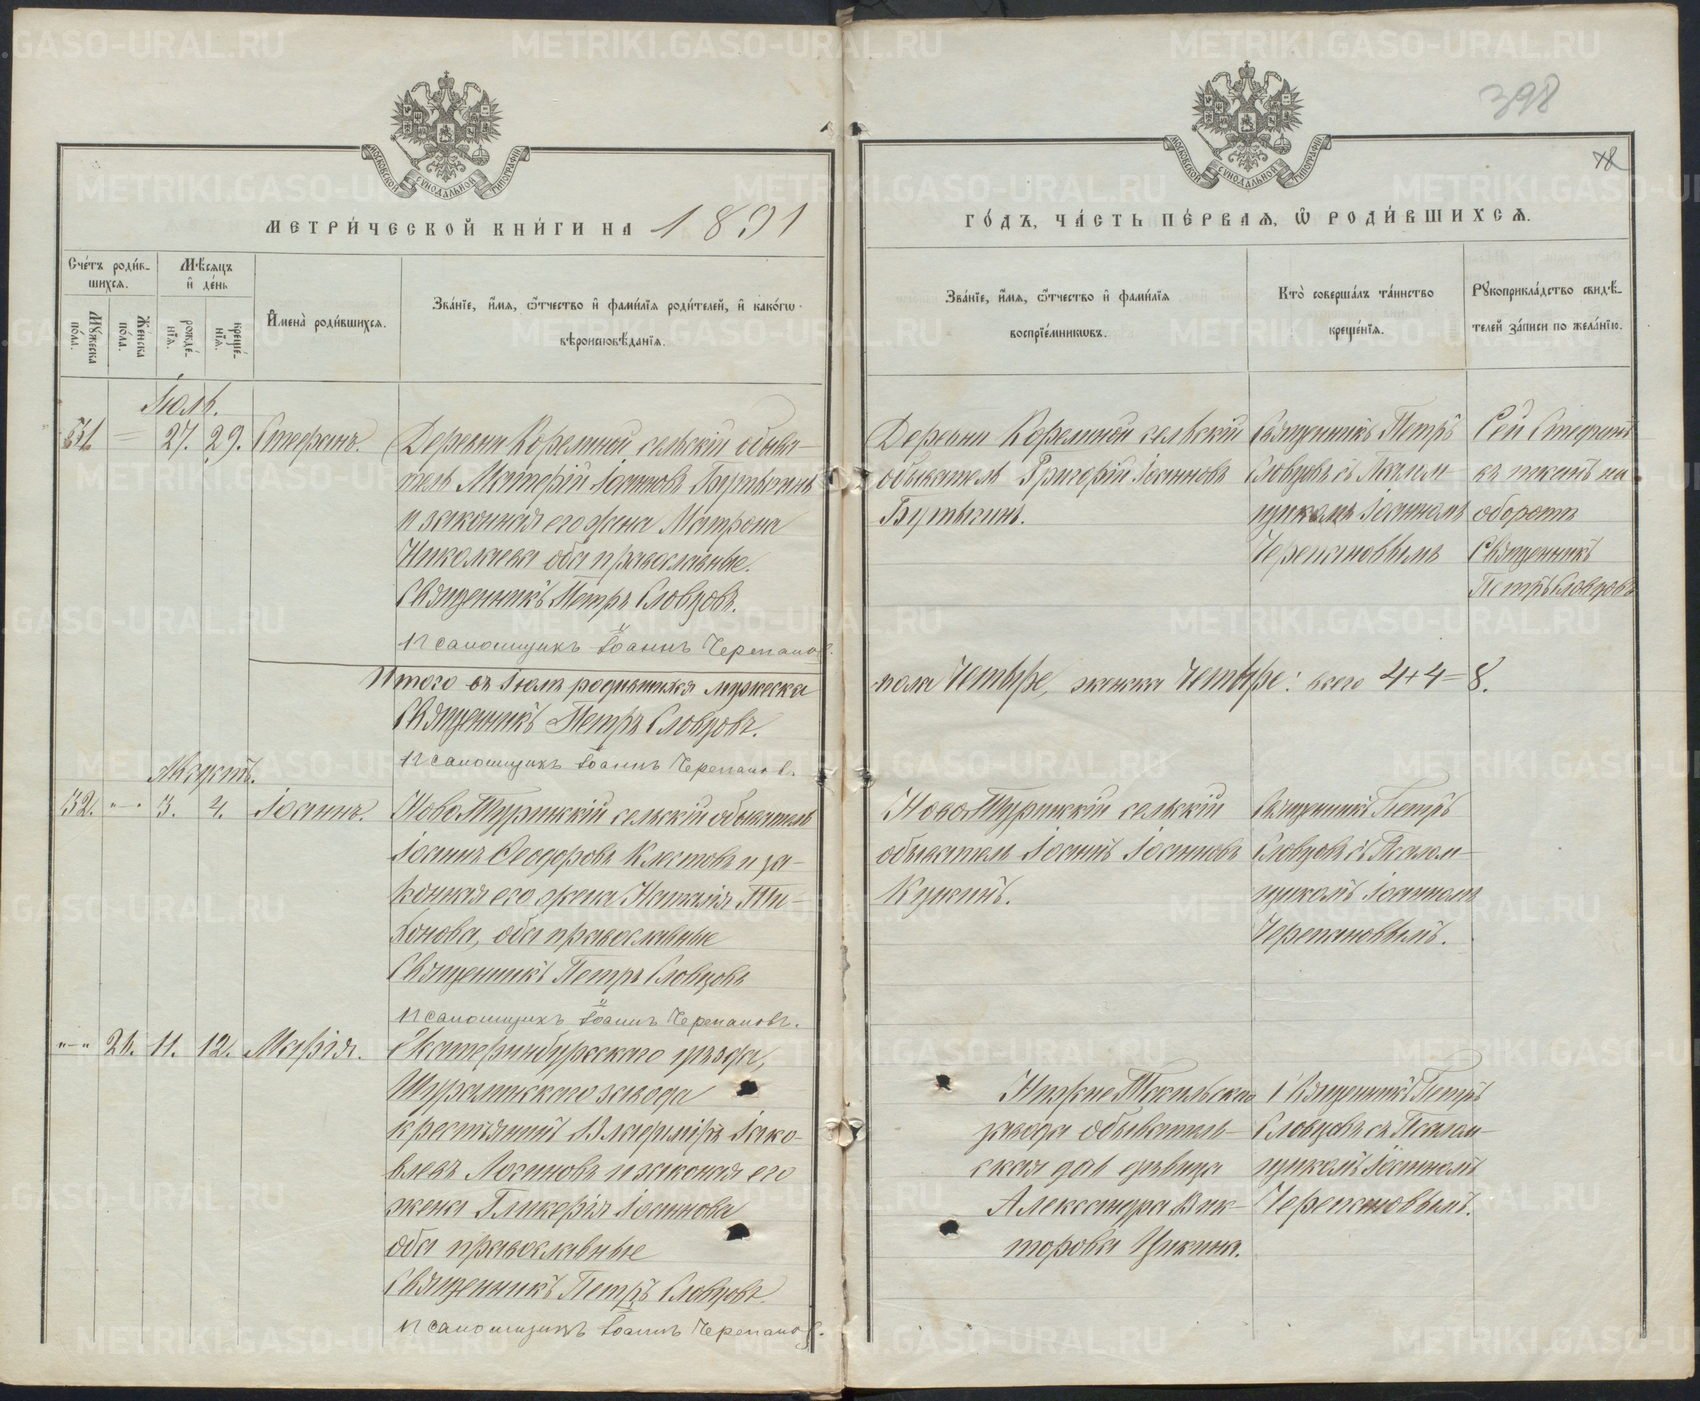 398
МОСКОВСКОЙ СѴНОДАЛЬНОЙ ТИПОГРАФІИ
МОСКОВСКОЙ СѴНОДАЛЬНОЙ ТИПОГРАФІИ
МЕТРИ́ЧЕСКОЙ КНИ́ГИ НА 1891
ГО́ДЪ, ЧА́СТЬ ПЕ́РВАѦ, Ѡ҆ РОДИ́ВШИХСѦ.
Сче́тъ роди́вшихсѧ.
Мꙋ́жеска по́ла.
Же́нска по́ла.
Мѣ́сѧцъ и҆ де́нь
рожде́нїѧ.
креще́нїѧ.
И҆мена̀ роди́вшихсѧ.
Зва́нїе, и҆́мѧ, ѻ҆́тчество и҆ фами́лїѧ роди́телей, и҆ како́гѡ
вѣроисповѣ́данїѧ.
Зва́нїе, и҆́мѧ, ѻ҆́тчество и҆ фами́лїѧ
воспрїе́мниковъ.
Кто̀ соверша́лъ та́инство
креще́нїѧ.
Рꙋкоприкла́дство свидѣ́-
телей за́писи по жела́нїю.
Іюль.
31. — 27. 29. Стефанъ.
Деревни Корелиной сельскій обыва-
тель Матфій Іоанновъ Бутыгинъ
и законная его жена Матрона
Николаева оба православные.
Священникъ Петръ Словцовъ.
Псаломщикъ Іоаннъ Черепановъ.
Деревни Корелиной сельскій
обыватель Григорій Іоанновъ
Бутыгинъ.
Священникъ Петръ
Словцовъ съ Псалом-
щикомъ Іоанномъ
Черепановымъ
Сей Стефанъ
на
оборотѣ
Священникъ
Петръ Словцовъ
Итого въ Іюлѣ родившихся мужеска
пола Четыре, женска Четыре: всего 4+4=8.
Священникъ Петръ Словцовъ.
Псаломщикъ Іоаннъ Черепановъ.
Августъ.
32. „-„ 3. 4. Іоаннъ.
Ново Туринскій сельскій обыватель
Іоаннъ Ѳеодоровъ и за-
конная его жена Наталія Ти-
хонова, оба православные
Священникъ Петръ Словцовъ
Псаломщикъ Іоаннъ Черепановъ.
Ново Туринскій сельскій
обыватель Іоаннъ Іоанновъ
Кукинъ.
Священникъ Петръ
Словцовъ съ Псалом-
щикомъ Іоанномъ
Черепановымъ.
„-„ 26. 11. 12. Марія.
Екатеринбургскаго уѣзда,
Шуралинскаго завода
крестьянинъ Владиміръ Іако-
влевъ Логиновъ и законная его
жена Гликерія Іоаннова
оба православные
Священникъ Петръ Словцовъ.
Псаломщикъ Іоаннъ Черепановъ.
Нижне Тагильскаго
завода обыватель-
ская дѣвица
Александра Вик-
торовна
Священникъ Петръ
Словцовъ съ Псалом-
щикомъ Іоанномъ
Черепановымъ.
METRIKI.GASO-URAL.RU